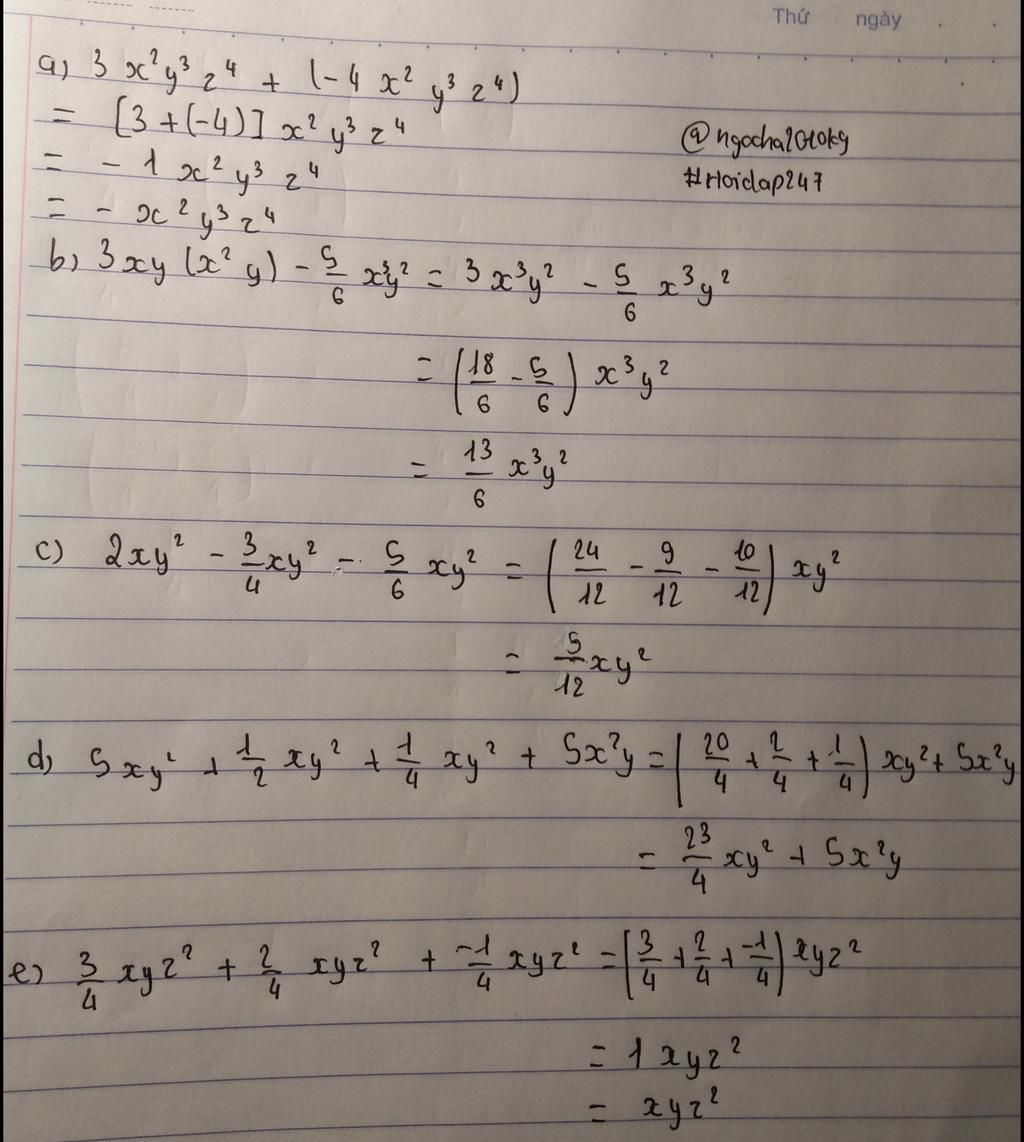 Thứ ngày
a) 3x²y³z⁴ + (-4x²y³z⁴)
= [3+(-4)] x²y³z⁴
@ngocha2010kg
= -1x²y³z⁴
#Hoidap247
= -x²y³z⁴
b) 3xy(x²y) - 5/6 x³y² = 3x³y² - 5/6 x³y²
= (18/6 - 5/6) x³y²
= 13/6 x³y²
c) 2xy² - 3/4 xy² - 5/6 xy² = (24/12 - 9/12 - 10/12) xy²
= 5/12 xy²
d) 5xy² + 1/2 xy² + 1/4 xy² + 5x²y = (20/4 + 2/4 + 1/4) xy² + 5x²y
= 23/4 xy² + 5x²y
e) 3/4 xyz² + 2/4 xyz² + -1/4 xyz² = (3/4 + 2/4 + -1/4) xyz²
= 1xyz²
= xyz²